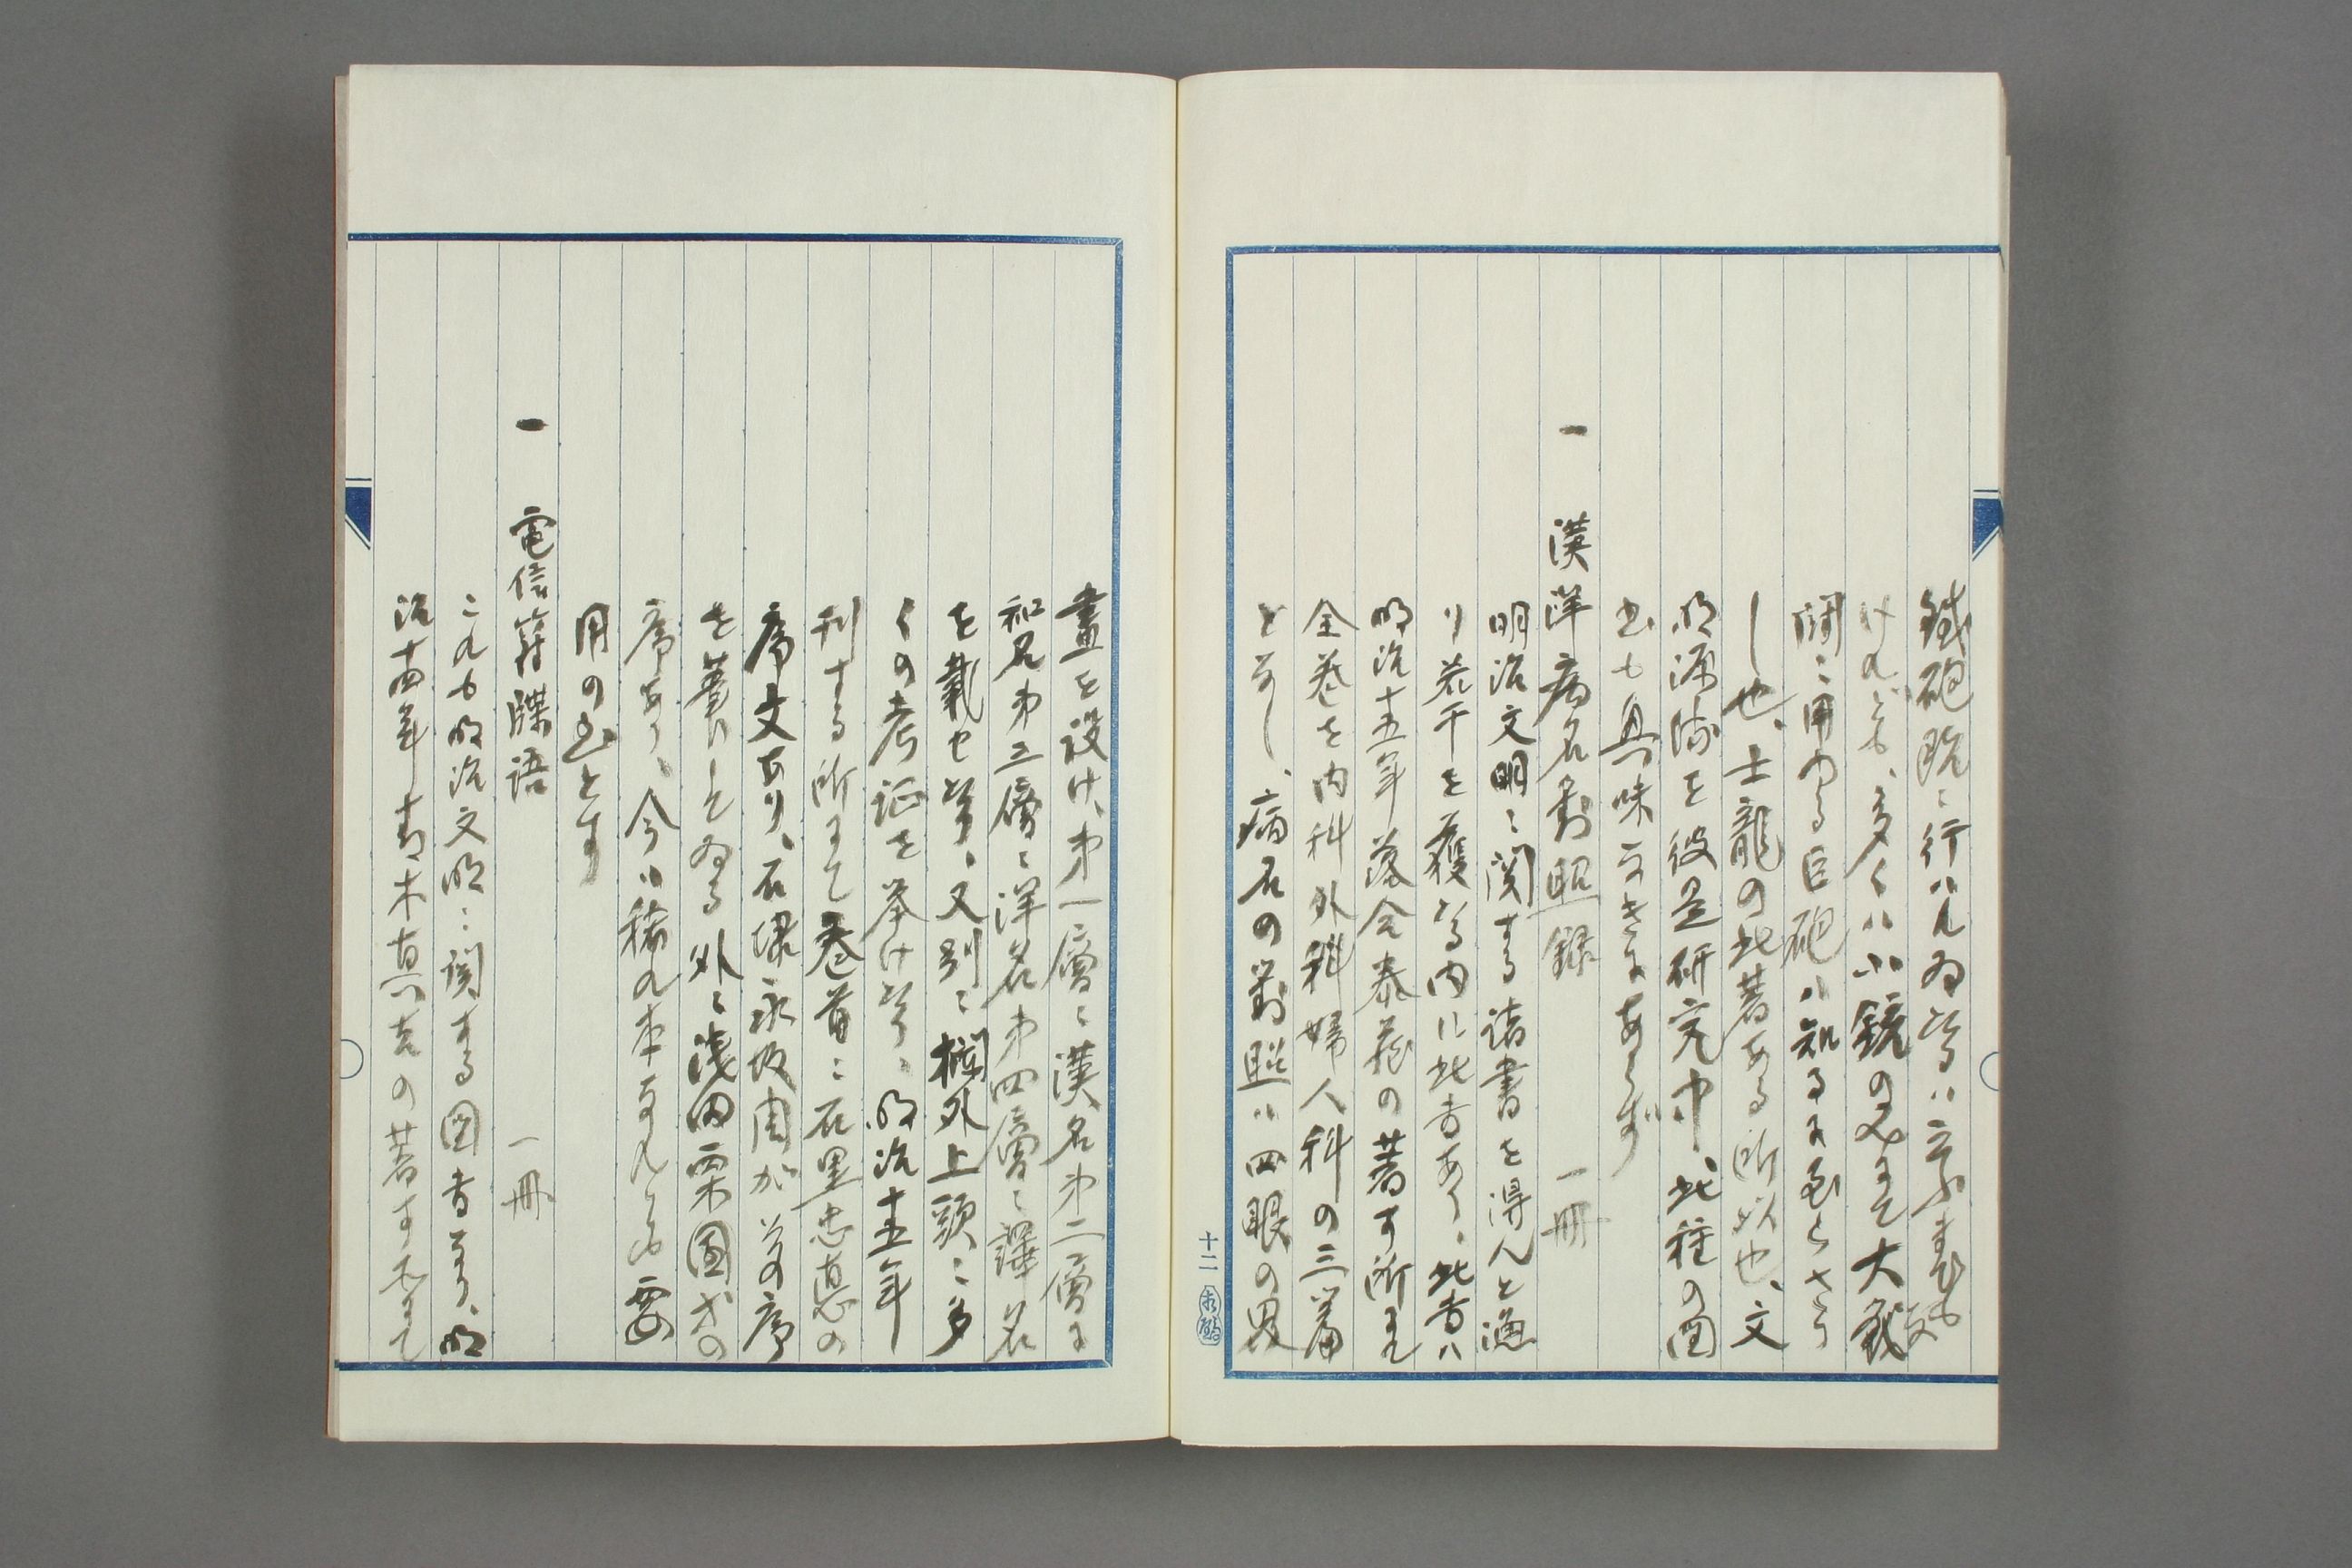 鉄砲既ニ行ハれゐ候ハ言ふまでも
けれども、多くハ小銃のみにて大戦
闘ニ用ゐる巨砲ハ知るに至らざり
し也、士龍の此著ある所以也、文
明源流を彼是研究中、此種の図
書も興味なきにあらず
一 漢洋病名對照録 一冊
明治文明ニ関する諸書を得んと漁
り若干を獲たる内に此書あり、此書ハ
明治十五年落合泰蔵の著す所にて
全巻を内科外科婦人科の三篇
となし、病名の對照ハ四眼の界
十二
畫を設け、第一層ニ漢名第二層に
和名第三層ニ洋名第四層ニ譯名
を載せたり、又別ニ欄外上頭ニ多
くの考証を挙けたり、明治十五年
刊する所にて巻首ニ石黒忠悳の
序文あり、石埭永坂周が其序
を書しをる外ニ浅田栗園等の
序あり、今ハ稀れ本なれとも要
用の書とす
一 電信符牒語 一冊
これも明治文明ニ関する図書なり、明
治十四年青木真吉の著す所にて